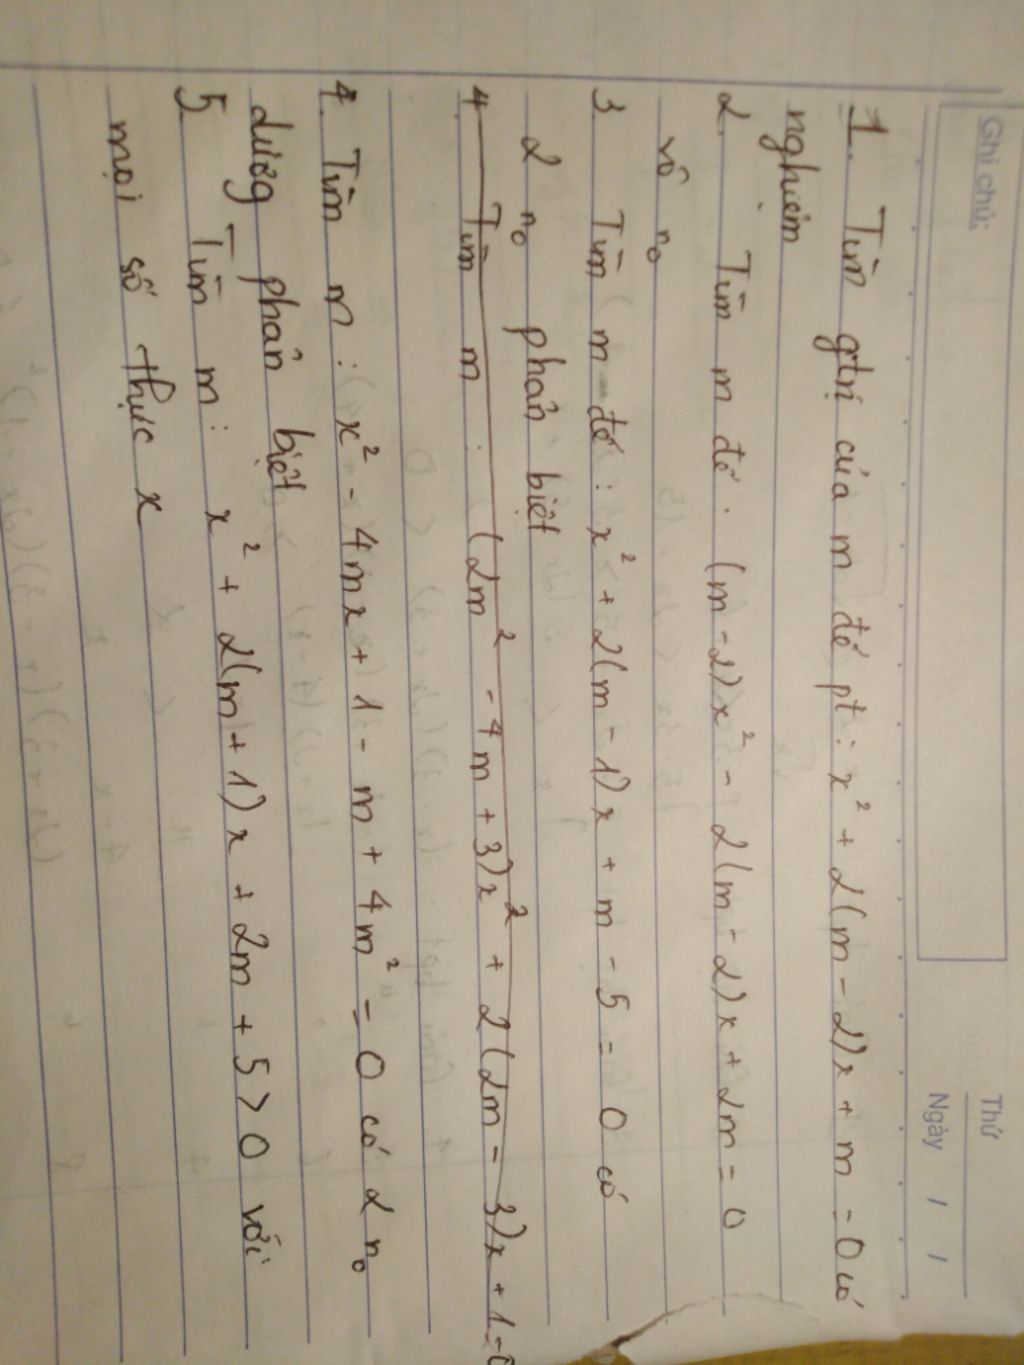 Ghi chú:
Thứ
Ngày / /
1. Tìm gtrị của m để pt: x² + 2(m - 2)x + m = 0 có
nghiệm
2. Tìm m để. (m-2)x² - 2(m - 2)x + 2m = 0
vô no
3 Tìm m để: x² + 2(m - 1)x + m - 5 = 0 có
2 no phân biệt
4 Tìm m: (2m² - 4m + 3)x² + 2(2m - 3)x + 1 = 0
4. Tìm m: x² - 4mx + 1 - m + 4m² = 0 có 2 no
dương phân biệt
5. Tìm m: x² + 2(m + 1)x + 2m + 5 > 0 với
mọi số thực x